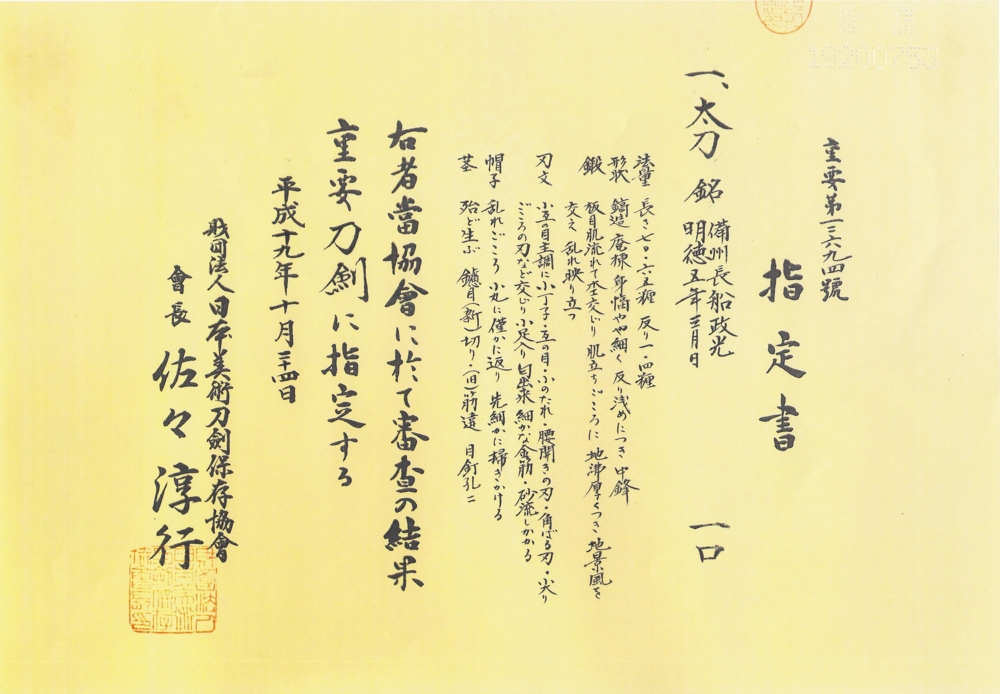 重要第一三六九四號
指定書
一、太刀 銘 備州長船政光 一口
明徳五年三月日
法量 長さ七〇・六五糎 反り一・四糎
形状 鎬造 庵棟 身幅やや細く 反り浅めにつき 中鋒
鍛 板目肌流れて杢交じり 肌立ちごころに 地沸厚くつき 地景風を
交え 乱れ映り立つ
刃文 小互の目主調に小丁子・互の目・小のたれ・腰開きの刃・角ばる刃・尖り
ごころの刃など交じり 小足入り 匂出来 細かな金筋・砂流しかかる
帽子 乱れごころ 小丸に僅かに返り 先細かに掃きかける
茎 殆ど生ぶ 鑢目(新)切り・(旧)筋違 目釘孔二
右者當協會に於て審査の結果
重要刀剣に指定する
平成十九年十月二十四日
財団法人日本美術刀劍保存協會
會長 佐々淳行